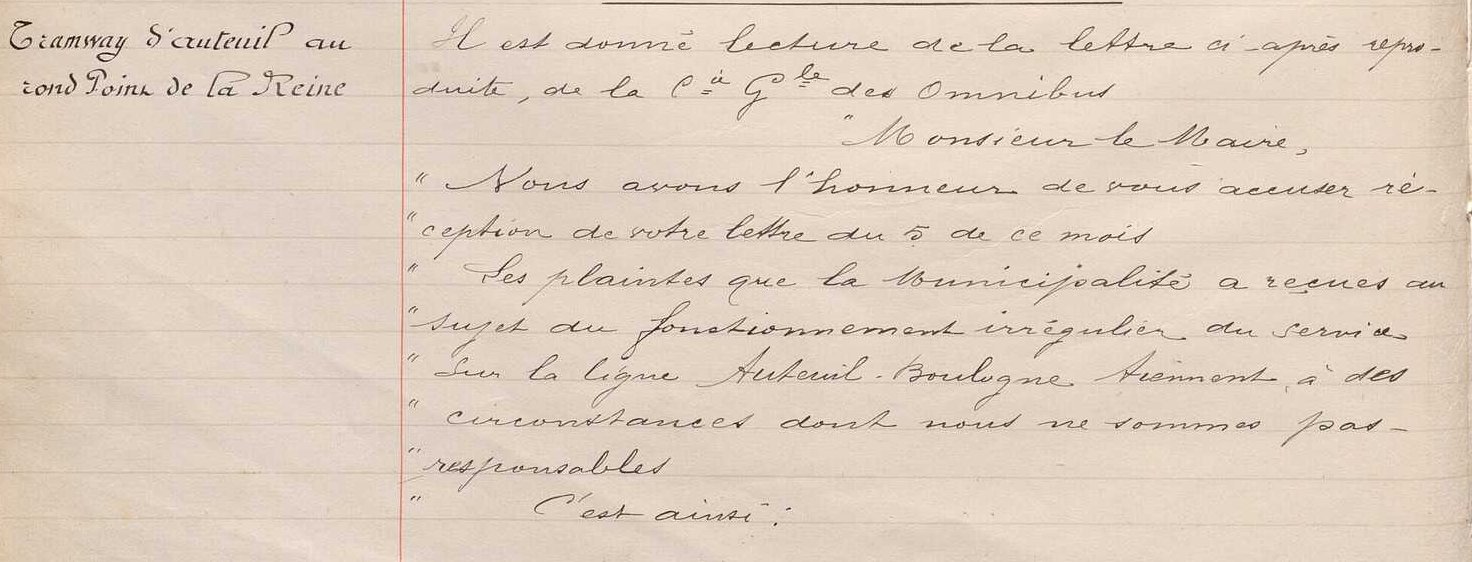 Tramway d'auteuil au
rond Point de la Reine
Il est donné lecture de la lettre ci-après repro-
duite, de la Cie Gle des Omnibus
"Monsieur le Maire,
" Nous avons l'honneur de vous accuser ré-
"ception de votre lettre du 5 de ce mois
" Les plaintes que la Municipalité a reçues au
"sujet du fonctionnement irrégulier du service
" sur la ligne Auteuil-Boulogne tiennent à des
" circonstances dont nous ne sommes pas-
"responsables
" C'est ainsi: